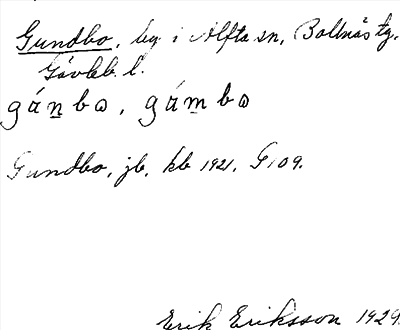 Gundbo, by i Alfta sn, Bollnäs tg,
Gävleb. l.
gánbɷ, gámbɷ
Gundbo, jb, kb 1921, G109.
Erik Eriksson 1929.